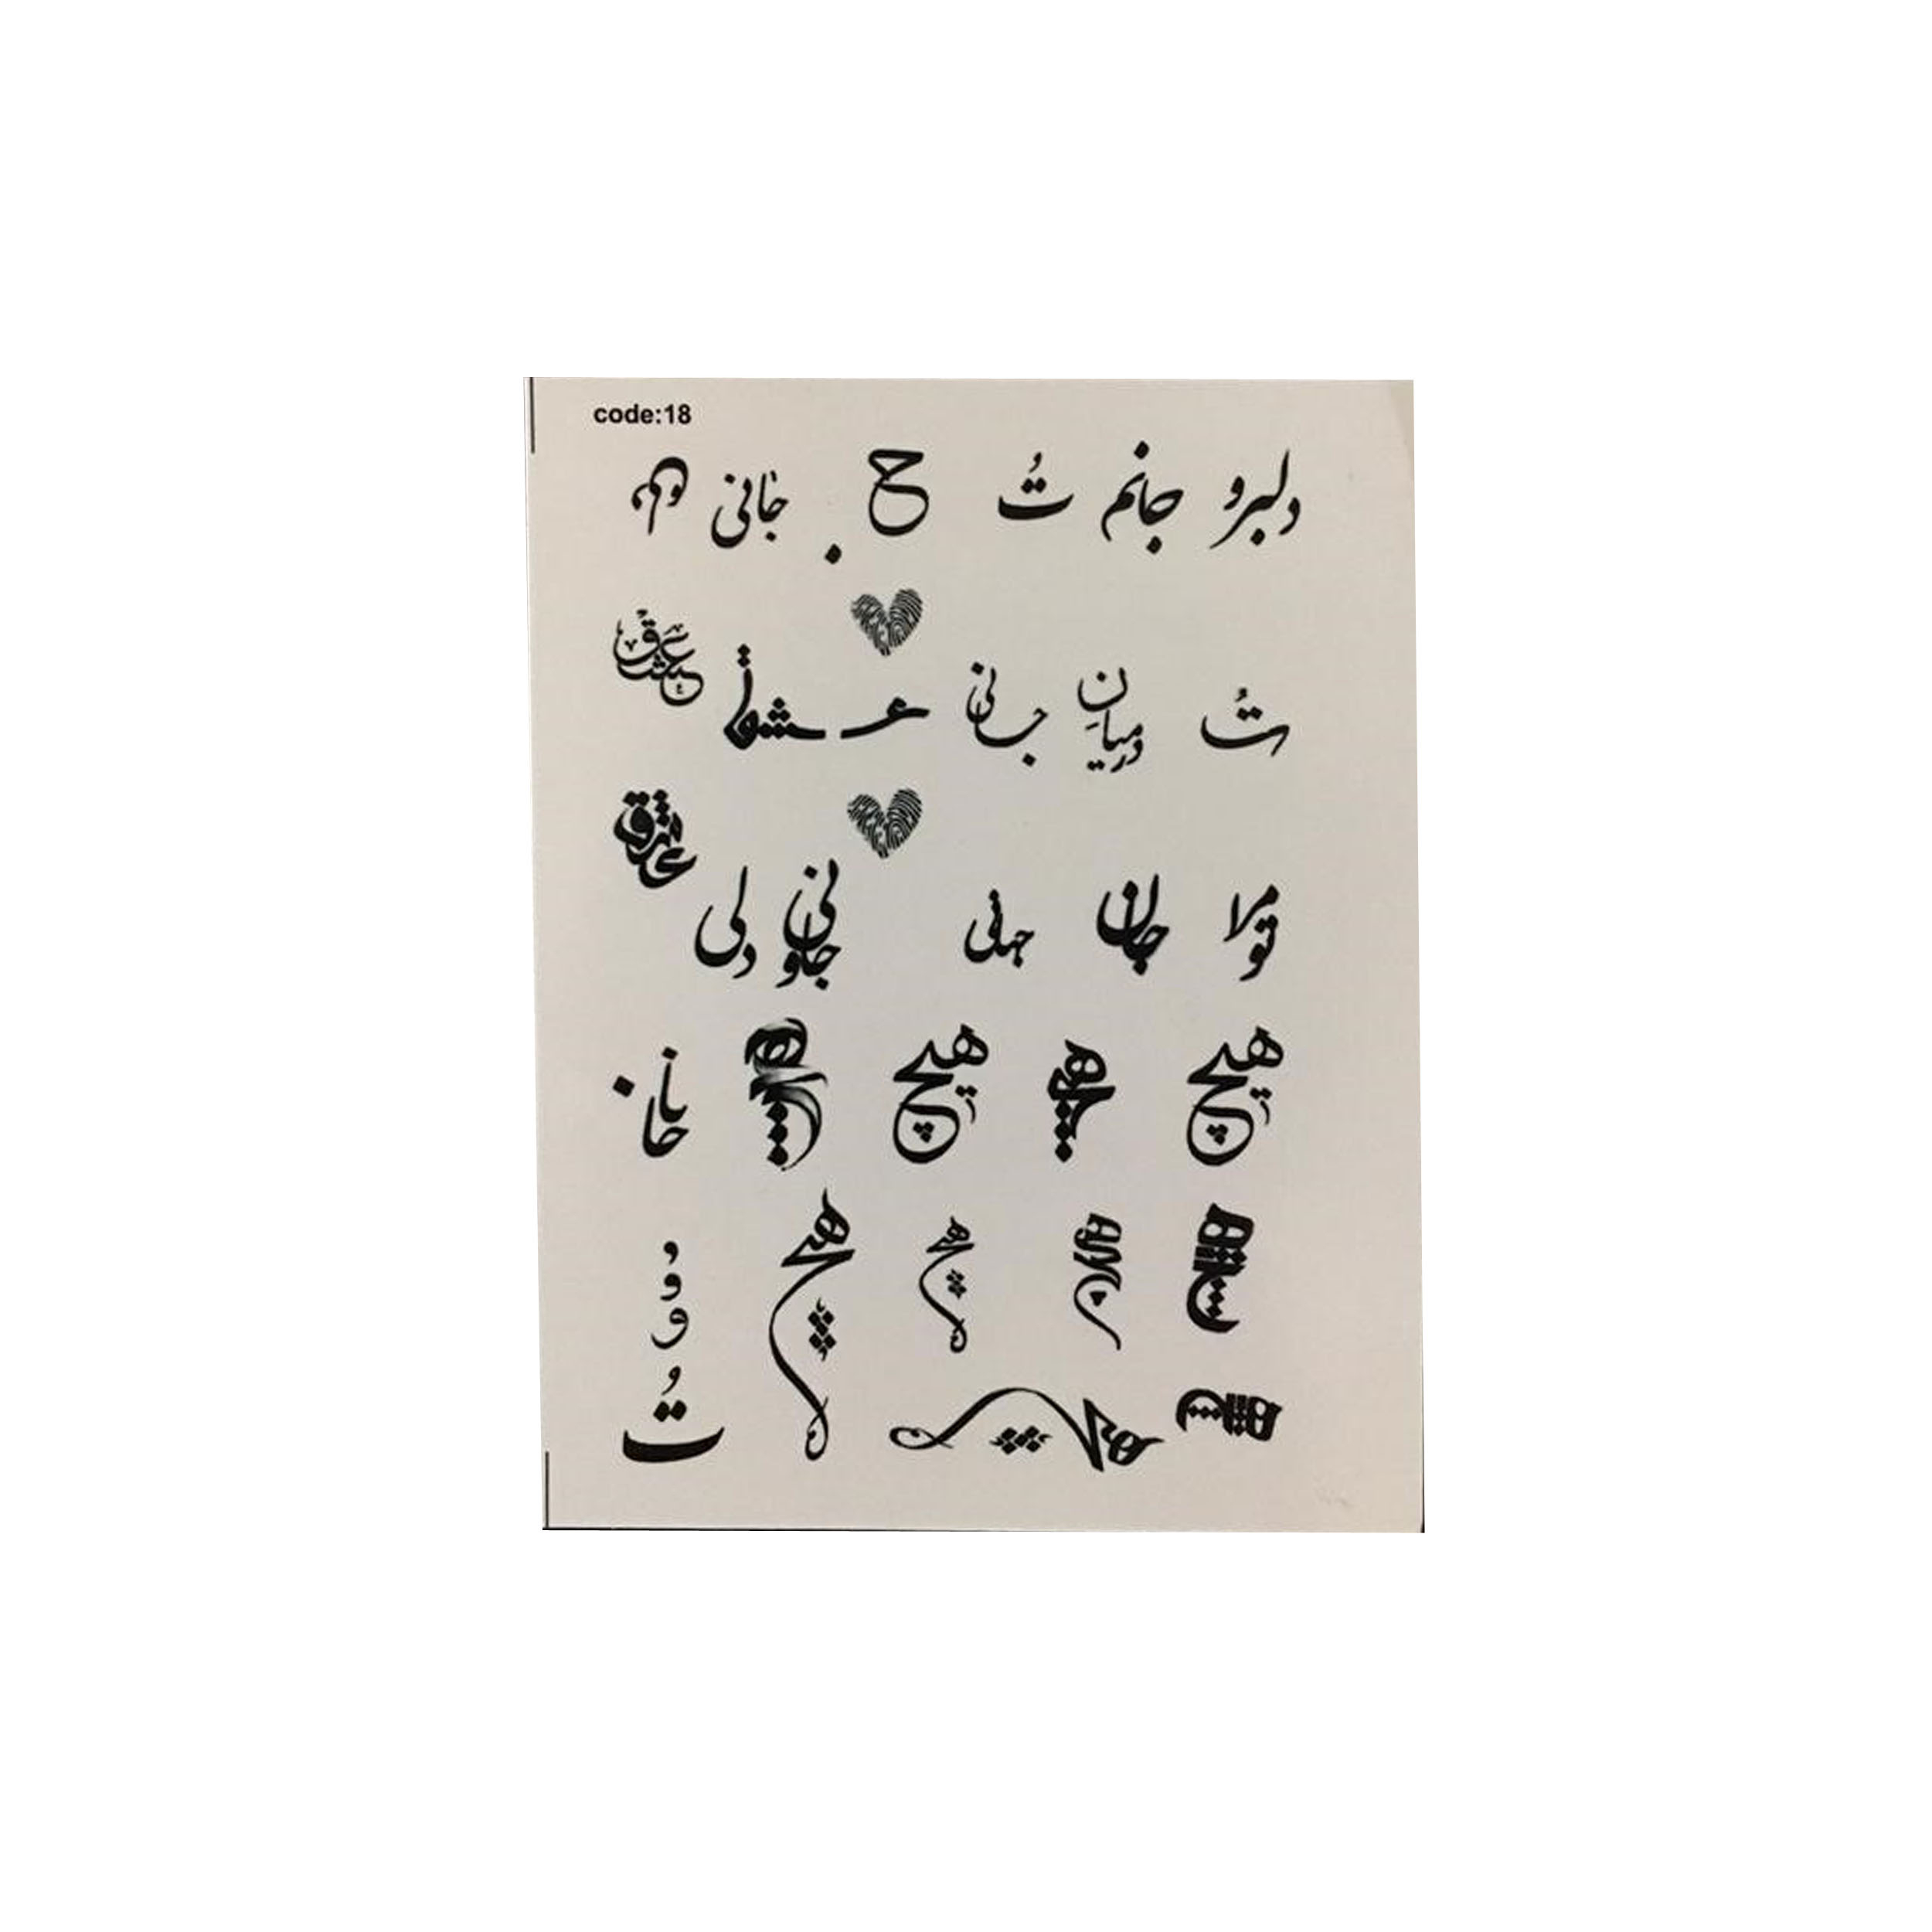 code:18
دلبرو جانم تُ ج جانی
تُ درمیانِ جانی عشق عشق
تو مرا جان جهانی جانی و دلی عشق
هیچ هیچ هیچ هیچ جانا
هیچ هیچ هیچ هیچ و و و
هیچ هیچ تُ